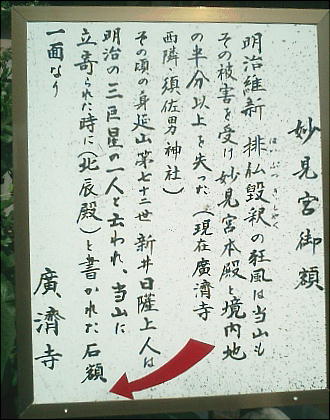 妙見宮御額
明治維新 排仏毀釈の狂風は当山も
はいぶつきしゃく
その被害を受け妙見宮本殿と境内地
の半分以上を失った(現在廣濟寺
西隣 須佐男神社)
その頃の身延山第七十二世 新井日薩上人は
明治の三巨星の一人と云われ、当山に
立寄られた時に(北辰殿)と書かれた石額
一面なり
廣濟寺